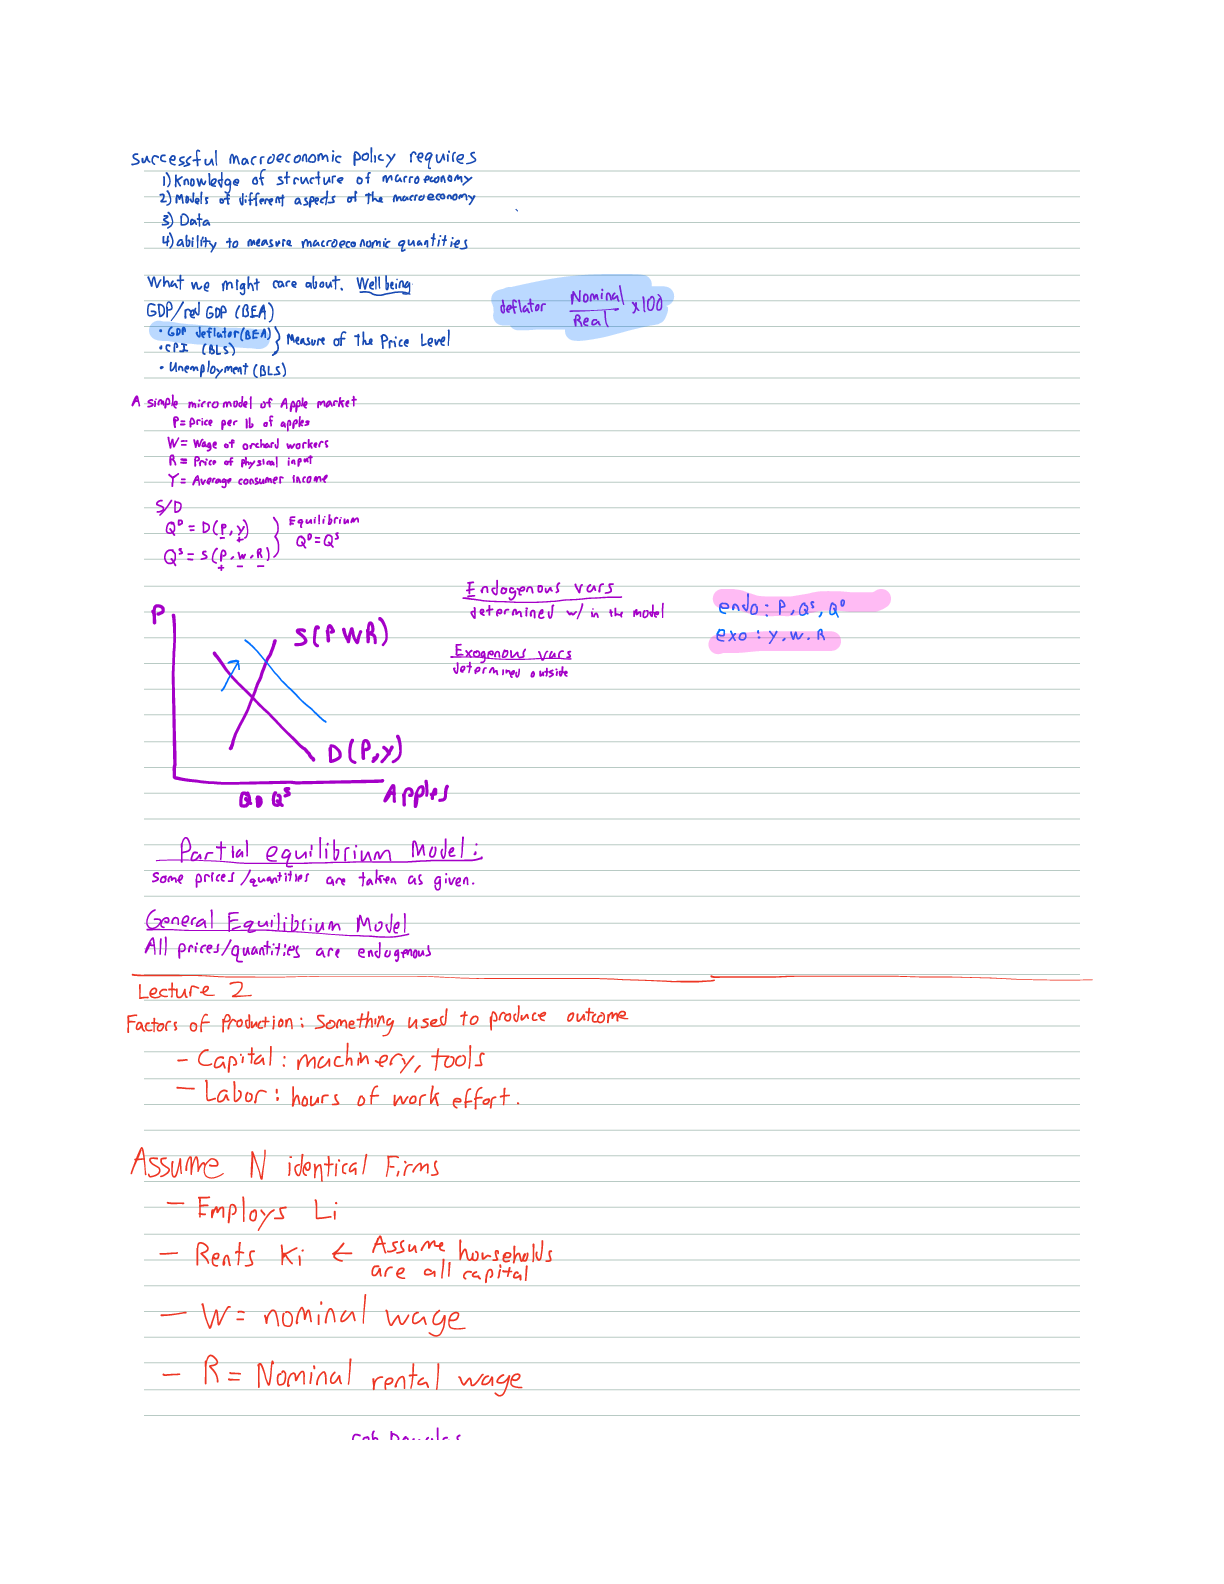 Successful macroeconomic policy requires
1) Knowledge of structure of macroeconomy
2) Models of different aspects of the macroeconomy
3) Data
4) ability to measure macroeconomic quantities
What we might care about. Well being
GDP/real GDP (BEA)
• GDP deflator (BEA)
• CPI (BLS)
} Measure of The Price Level
• Unemployment (BLS)
deflator Nominal/Real x100
A simple micro model of Apple market
P = price per lb of apples
W = Wage of orchard workers
R = Price of physical input
Y = Average consumer income
S/D
Qᴰ = D(P, y)
- +
Qˢ = S(P, w, R)
+ - -
} Equilibrium
Qᴰ = Qˢ
Endogenous vars
determined w/in the model
Exogenous vars
determined outside
endo: P, Qˢ, Qᴰ
exo: y, w, R
P
S(P W R)
D(P, y)
QD Qˢ
Apples
Partial equilibrium Model:
Some prices/quantities are taken as given.
General Equilibrium Model
All prices/quantities are endogenous
Lecture 2
Factors of Production: Something used to produce outcome
- Capital: machinery, tools
- Labor: hours of work effort.
Assume N identical Firms
- Employs Li
- Rents Ki ← Assume households
are all capital
- W = nominal wage
- R = Nominal rental wage